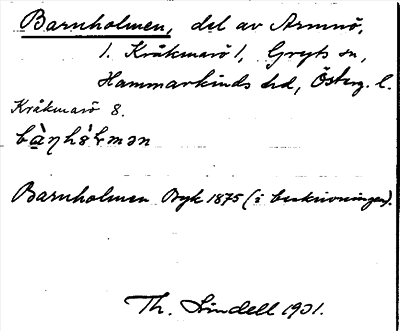 Barnholmen, del av Armnö,
1. Kråkmarö 1, Gryts sn,
Hammarkinds hd, Österg. l.
Kråkmarö 8.
Barnholmen Byk 1875 (i beskrivningen).
Th. Lindell 1931.